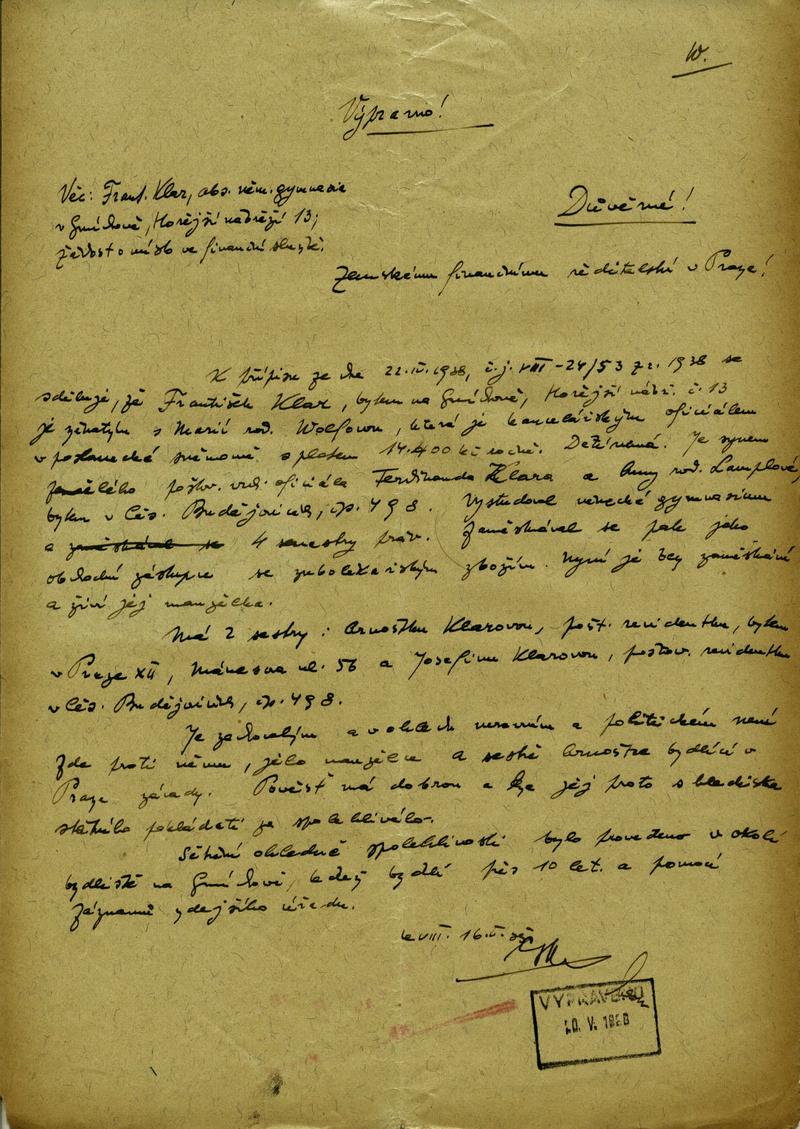 W.
Výpravno!
Věc: Frant. Klar, abs. něm. gymnasia
v Smíchově, Hořejší nábřeží 13;
žádost o místo ve finanční službě.
Důvěrné!
Zemskému finančnímu ředitelství v Praze!
K přípisu ze dne 22.IV.1938, č.j. VIII-24/53 z r. 1938 se
sděluje, že František Klar, bytem na Smíchově, Hořejší nábř. č. 13
je ženatým s Marií roz. Wolfovou, která je kancelářským oficiálem
v poslanecké sněmovně s platem 14.400 Kč ročně. Dětí nemá. Je synem
poštov. vrch. oficiála Ferdinanda Klara a Anny roz. Lamplové,
bytem v Čes. Budějovicích, čp. 498. Vystudoval německé gymnasium
a zaměstnával se 4 semestry práv. Zaměstnával se pak jako
obchodní zástupce se zubolékařským zbožím. Nyní je bez zaměstnání
a živí jej manželka.
Má 2 sestry: Arnoštku Klarovou, pošt. revidentku, bytem
v Praze XII, Mánesova ul. 56 a Josefinu Klarovou, poštov. revidentku
v Čes. Budějovicích, čp. 498.
Je zachovalým a v ohledu mravním a politickém není
zde proti němu, jeho manželce a sestře Arnoštce bydlící v
Praze závady. Pověst má dobrou a lze jej proto s hlediska
státního pokládati za spolehlivého.
Šetření ohledně spolehlivosti bylo provedeno v okolí
bydliště na Smíchově, kde bydlí přes 10 let a pomocí
záznamů zdejšího úřadu.
VIII. 16.V.
VYPRAVENO
20. V. 1938